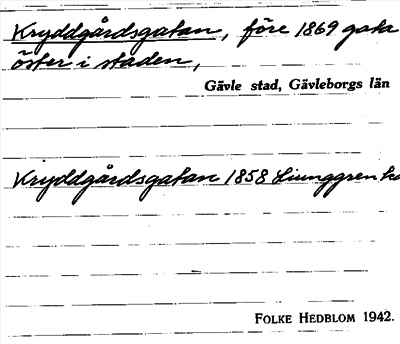 Kryddgårdsgatan, före 1869 gata
öster i staden,
Gävle stad, Gävleborgs län
Kryddgårdsgatan 1858 Ljunggren ka
FOLKE HEDBLOM 1942.